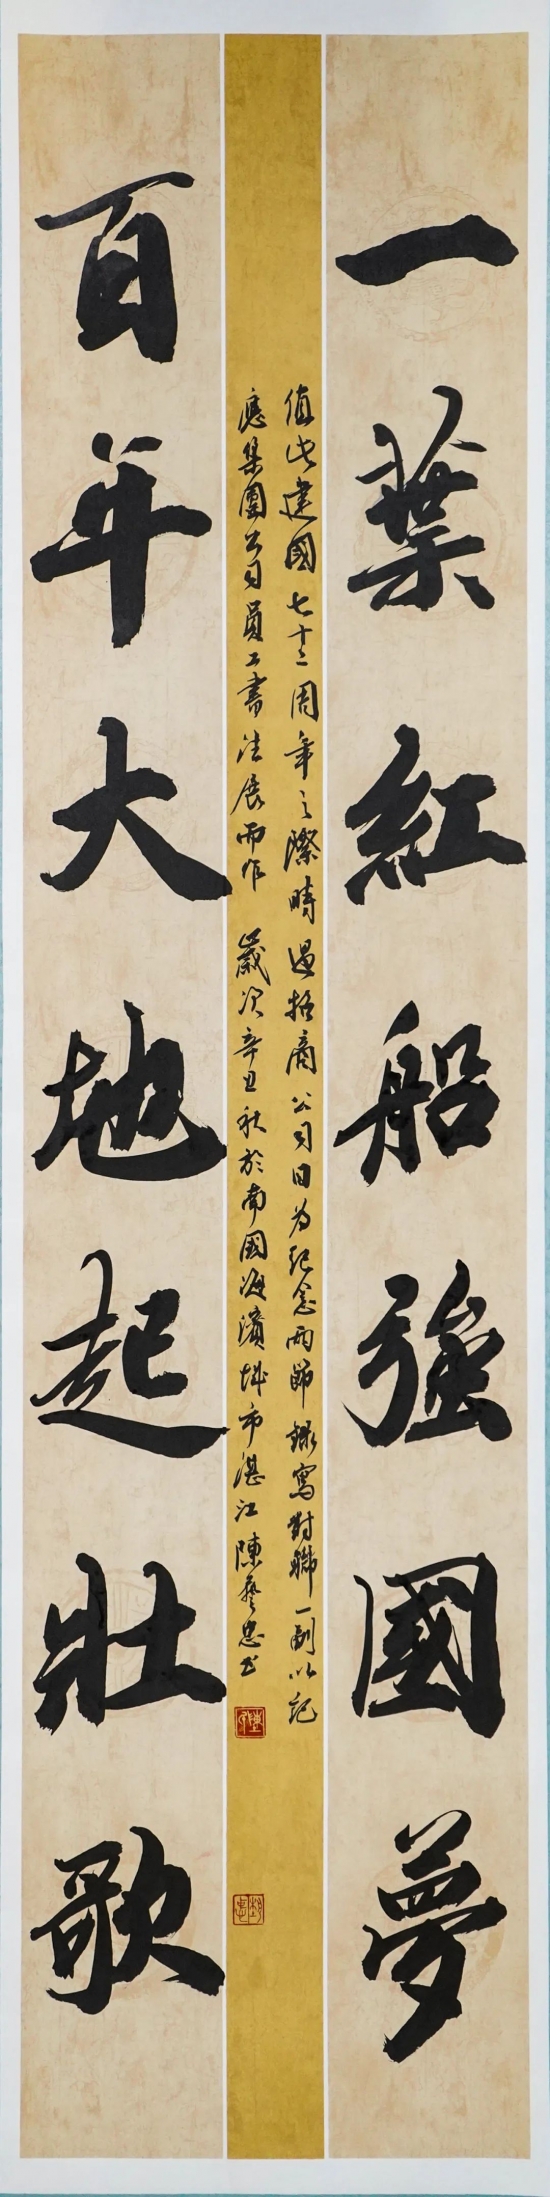 一葉紅船強國夢
值此建國七十二周年之際時遇招商公司日为紀念兩節録寫對聯一副以記
應集團公司員工書法展而作 歲次辛丑秋於南國海濱城市湛江陳藝忠书
百年大地起壯歌